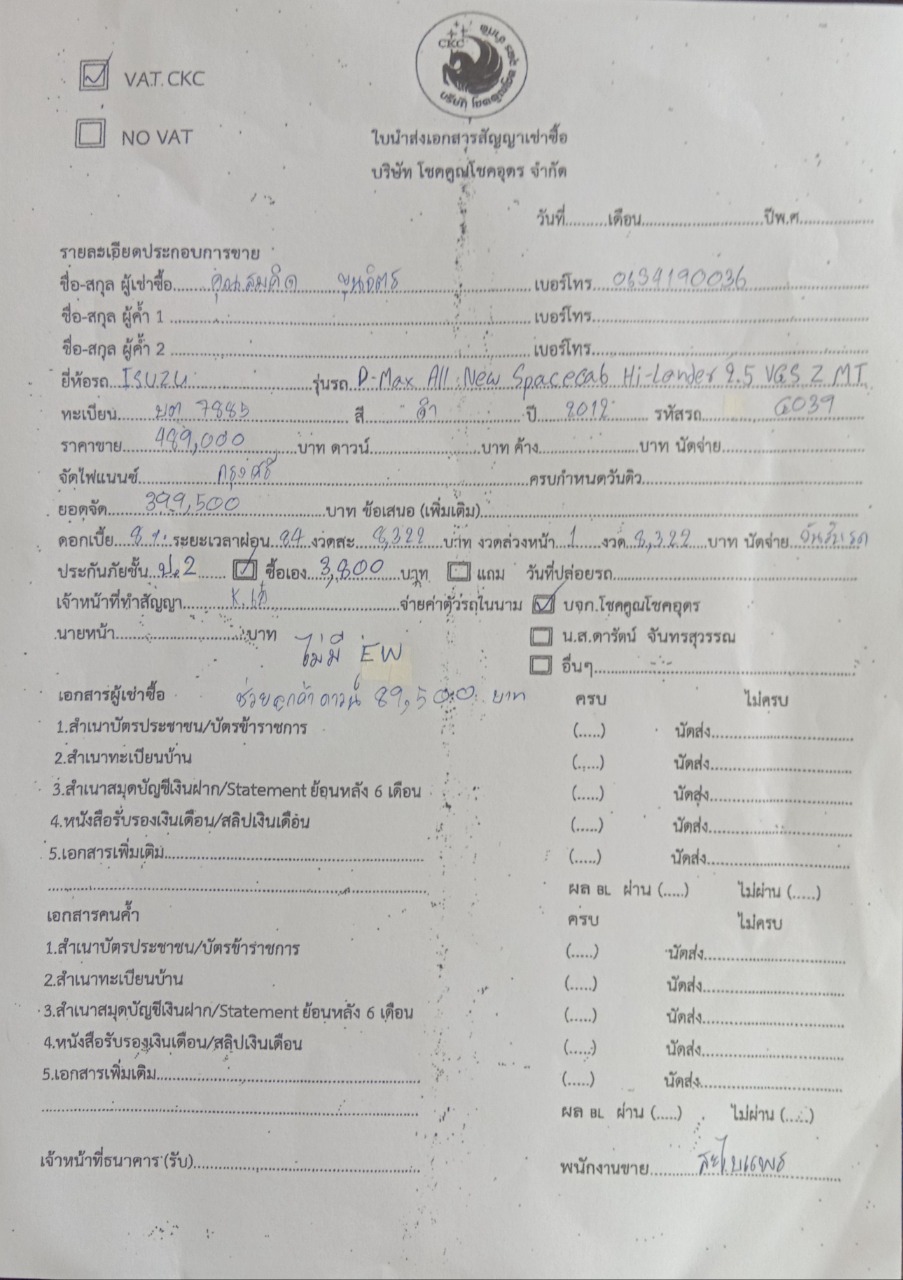 ☑ VAT.CKC
☐ NO VAT
CKC
ใบนำส่งเอกสารสัญญาเช่าซื้อ
บริษัท โชคคูณโชคอุดร จำกัด
วันที่..........เดือน..............................ปีพ.ศ...................
รายละเอียดประกอบการขาย
ชื่อ-สกุล ผู้เช่าซื้อ คุณสมคิด ขุนจิตร เบอร์โทร 0634190036
ชื่อ-สกุล ผู้ค้ำ 1 .............................. เบอร์โทร..............................
ชื่อ-สกุล ผู้ค้ำ 2 .............................. เบอร์โทร..............................
ยี่ห้อรถ ISUZU รุ่นรถ D-Max All New Spacecab Hi-Lander 2.5 VGS Z MT
ทะเบียน 7885 สี ดำ ปี 2012 รหัสรถ G039
ราคาขาย 489,000 บาท ดาวน์....................บาท ค้าง....................บาท นัดจ่าย....................
จัดไฟแนนซ์ กรุงศรี ครบกำหนดวันดิว..............................
ยอดจัด 399,500 บาท ข้อเสนอ (เพิ่มเติม)..............................
ดอกเบี้ย 8 %. ระยะเวลาผ่อน 84 งวดละ 8,322 บาท งวดล่วงหน้า 1 งวด 8,322 บาท นัดจ่าย วันรับรถ
ประกันภัยชั้น ป.2 ☑ ซื้อเอง 3,800 บาท ☐ แถม วันที่ปล่อยรถ..............................
เจ้าหน้าที่ทำสัญญา K.เก๋ จ่ายค่าตัวรถในนาม ☑ บจก.โชคคูณโชคอุดร
นายหน้า....................บาท ☐ น.ส.ดารัตน์ จันทรสุวรรณ
ไม่มี EW ☐ อื่นๆ..............................
เอกสารผู้เช่าซื้อ ช่วยลูกค้าดาวน์ 89,500 บาท ครบ ไม่ครบ
1.สำเนาบัตรประชาชน/บัตรข้าราชการ (.....) นัดส่ง....................
2.สำเนาทะเบียนบ้าน (.....) นัดส่ง....................
3.สำเนาสมุดบัญชีเงินฝาก/Statement ย้อนหลัง 6 เดือน (.....) นัดส่ง....................
4.หนังสือรับรองเงินเดือน/สลิปเงินเดือน (.....) นัดส่ง....................
5.เอกสารเพิ่มเติม.............................. (.....) นัดส่ง....................
.............................. ผล BL ผ่าน (.....) ไม่ผ่าน (.....)
เอกสารคนค้ำ ครบ ไม่ครบ
1.สำเนาบัตรประชาชน/บัตรข้าราชการ (.....) นัดส่ง....................
2.สำเนาทะเบียนบ้าน (.....) นัดส่ง....................
3.สำเนาสมุดบัญชีเงินฝาก/Statement ย้อนหลัง 6 เดือน (.....) นัดส่ง....................
4.หนังสือรับรองเงินเดือน/สลิปเงินเดือน (.....) นัดส่ง....................
5.เอกสารเพิ่มเติม.............................. (.....) นัดส่ง....................
.............................. ผล BL ผ่าน (.....) ไม่ผ่าน (.....)
เจ้าหน้าที่ธนาคาร (รับ).............................. พนักงานขาย..............................